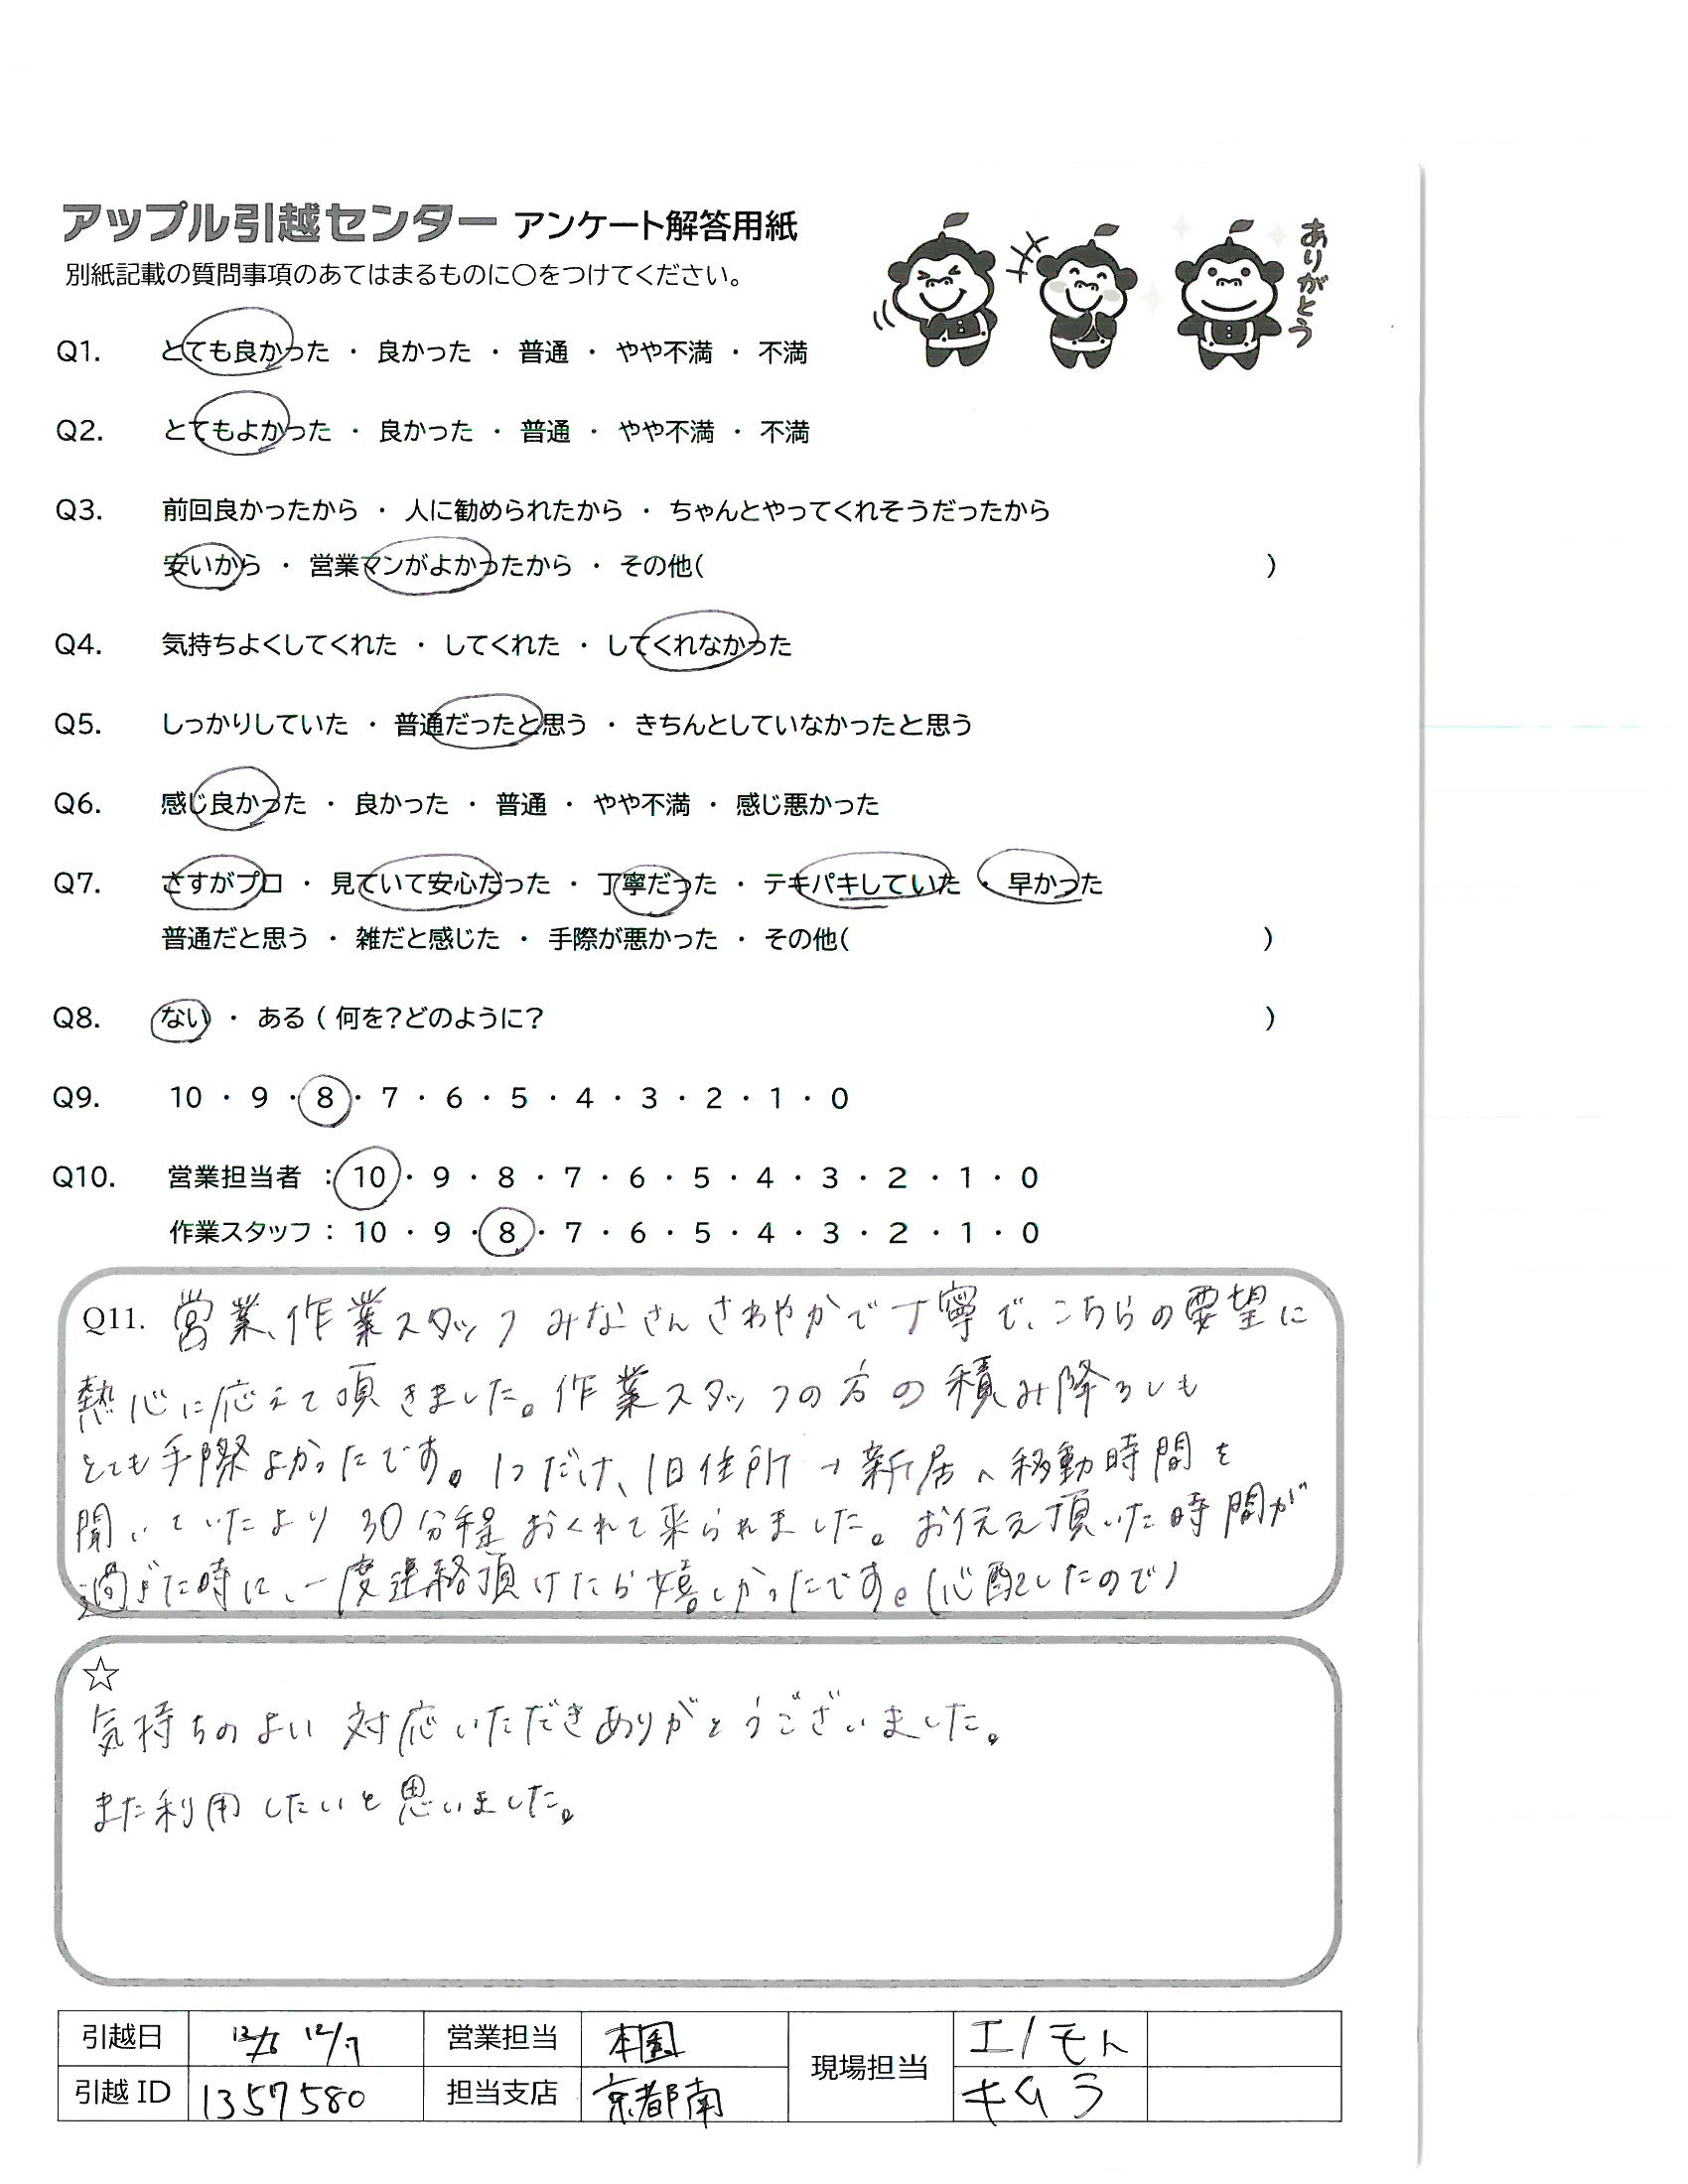 アップル引越センター アンケート解答用紙
別紙記載の質問事項のあてはまるものに○をつけてください。
ありがとう
Q1. とても良かった ・ 良かった ・ 普通 ・ やや不満 ・ 不満
Q2. とてもよかった ・ 良かった ・ 普通 ・ やや不満 ・ 不満
Q3. 前回良かったから ・ 人に勧められたから ・ ちゃんとやってくれそうだったから
安いから ・ 営業マンがよかったから ・ その他( )
Q4. 気持ちよくしてくれた ・ してくれた ・ してくれなかった
Q5. しっかりしていた ・ 普通だったと思う ・ きちんとしていなかったと思う
Q6. 感じ良かった ・ 良かった ・ 普通 ・ やや不満 ・ 感じ悪かった
Q7. さすがプロ ・ 見ていて安心だった ・ 丁寧だった ・ テキパキしていた ・ 早かった
普通だと思う ・ 雑だと感じた ・ 手際が悪かった ・ その他( )
Q8. ない ・ ある ( 何を?どのように? )
Q9. 10 ・ 9 ・ 8 ・ 7 ・ 6 ・ 5 ・ 4 ・ 3 ・ 2 ・ 1 ・ 0
Q10. 営業担当者 : 10 ・ 9 ・ 8 ・ 7 ・ 6 ・ 5 ・ 4 ・ 3 ・ 2 ・ 1 ・ 0
作業スタッフ : 10 ・ 9 ・ 8 ・ 7 ・ 6 ・ 5 ・ 4 ・ 3 ・ 2 ・ 1 ・ 0
Q11. 営業、作業スタッフ みなさんさわやかで丁寧で、こちらの要望に
熱心に応えて頂きました。作業スタッフの方の積み降ろしも
とても手際よかったです。1つだけ、旧住所→新居へ移動時間を
聞いていたより 30分程おくれて来られました。お伝え頂いた時間が
過ぎた時に、一度連絡頂けたら嬉しかったです。(心配したので)
☆
気持ちのよい 対応いただきありがとうございました。
また利用したいと思いました。
引越日 12/6 12/7 営業担当 本園 現場担当 エノモト
引越 ID 1357580 担当支店 京都南 キムラ